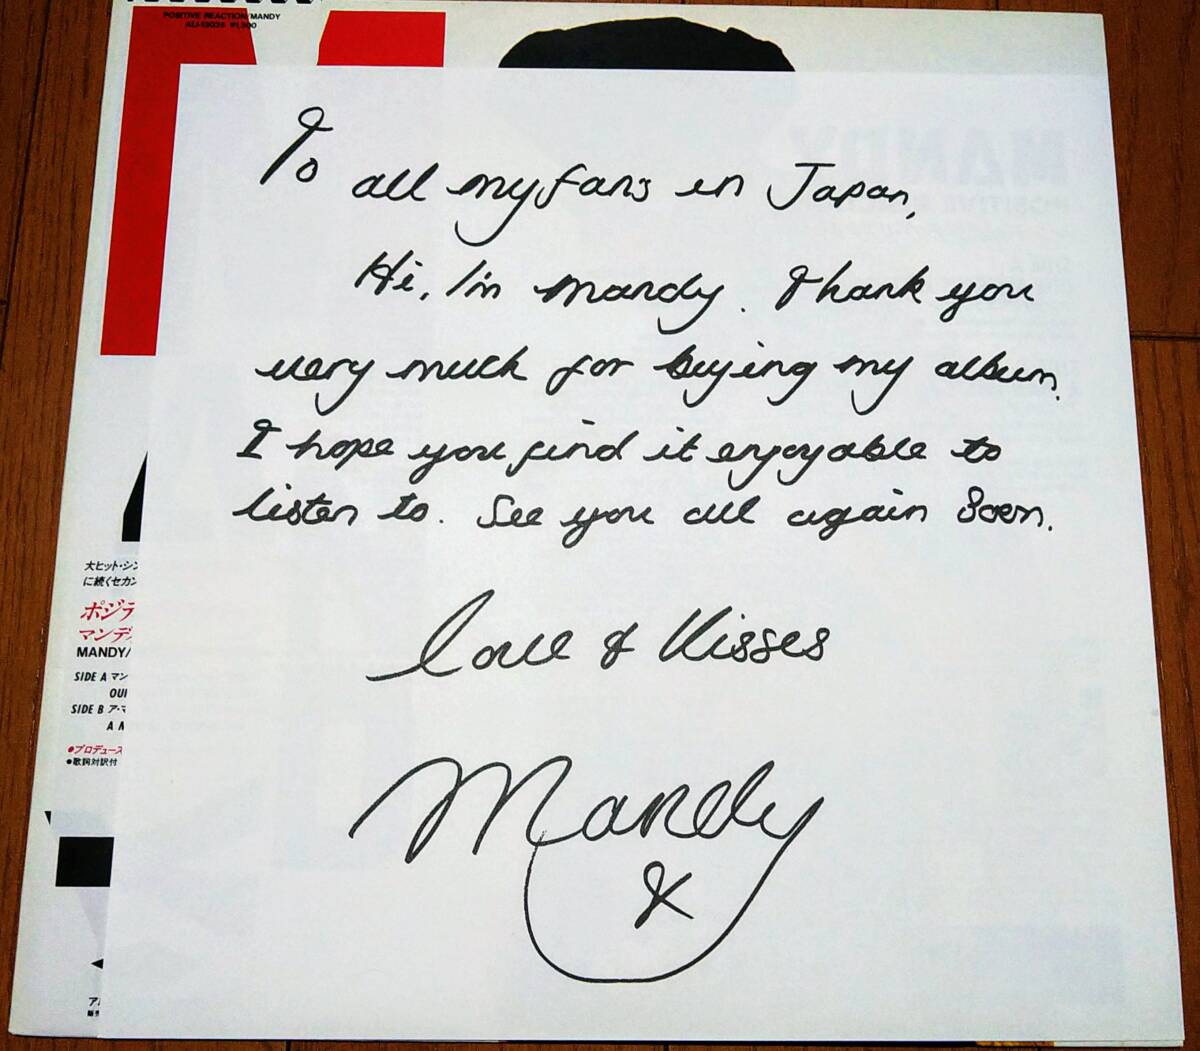 POSITIVE REACTION/MANDY
¥1,300
To all my fans in Japan,
Hi, I'm Mandy. Thank you
very much for buying my album.
I hope you find it enjoyable to
listen to. See you all again soon.
Love & Kisses
Mandy
X
大ヒット・シン
に続くセカン
ポジテ
マンデ
MANDY/
SIDE A マン
OUR
SIDE B ア・マ
A
●プロデュース
●歌詞対訳付
MANDY
POSITIVE